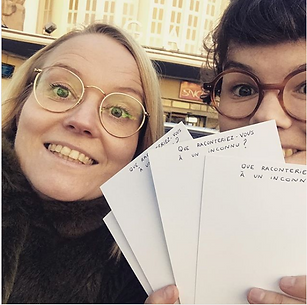 QUE RACONTERIEZ-VOUS
À UN
QUE RACONTERIEZ-VOUS
À UN INCONNU ?
QUE RACONTERIEZ
À UN INCONNU